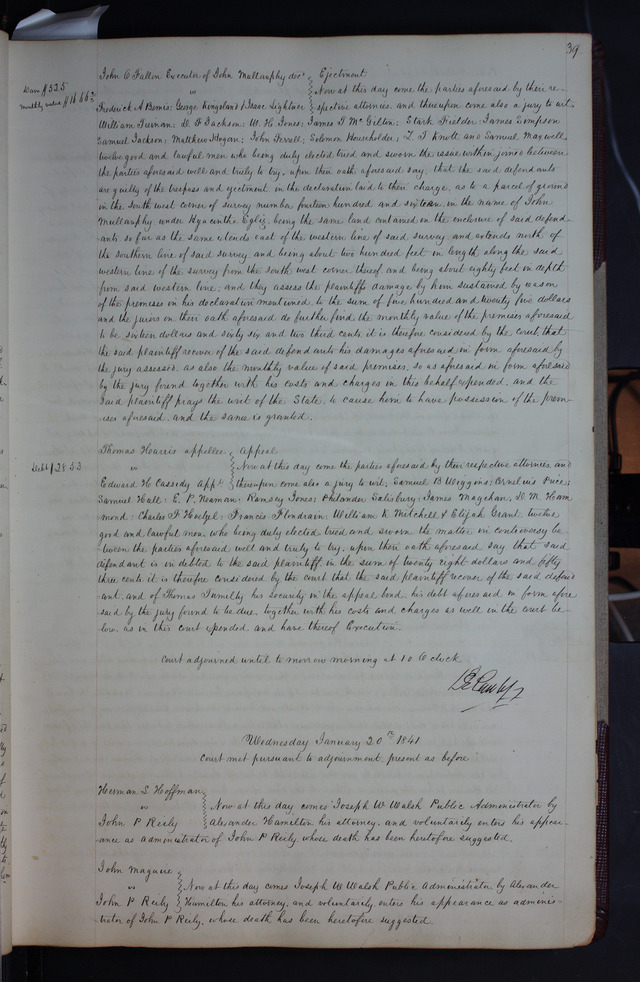 39
Dam $525
Monthly value $16.66 2/3
John O Fallon Executor of John Mullanphy decd } Ejectment
vs } Now at this day come the parties aforesaid by their re-
Frederick A Bemis; George Kingsland & Isaac Lightner } spective attornies, and thereupon come also a jury to wit,
William Tiernan; D. F Jackson; W. H Jones; James T Mc Gilton; Stark Fielder; James Simpson
Samuel Jackson; Matthew Hogan; John Ferrell; Solomon Householder; T. J Knott and Samuel Maxwell
twelve good and lawful men who being duly elected tried and sworn the issue within joined between
the parties aforesaid well and truly to try, upon their oath aforesaid say, that the said defendants
are guilty of the trespass and ejectment in the declaration laid to their charge, as to a parcel of ground
in the South west corner of survey number fourteen hundred and sixteen, in the name of John
Mullanphy under Hyacinthe Egliz, being the same land contained in the enclosure of said defend
ants so far as the same extends east of the western line of said survey and extends north of
the southern line of said survey and being about two hundred feet in length along the said
western line of the survey from the south west corner thereof and being about eighty feet in depth
from said western line; and they assess the plaintiffs damage by him sustained by reason
of the premises in his declaration mentioned to the sum of five hundred and twenty five dollars
and the jurors on their oath aforesaid do further find the monthly value of the premises aforesaid
to be sixteen dollars and sixty six and two third cents it is therefore considered by the court that
the said plaintiff recover of the said defendants his damages aforesaid in form aforesaid by
the jury assessed, as also the monthly value of said premises, so as aforesaid in form aforesaid
by the jury found together with his costs and charges in this behalf expended, and the
said plaintiff prays the writ of the State, to cause him to have possession of the prem-
ises aforesaid, and the same is granted.
Debt $28.53
Thomas Harris appellee } Appeal
vs } Now at this day come the parties aforesaid by their respective attornies, and
Edward H Cassidy, Applt } thereupon come also a jury to wit, Samuel B Wiggins; Cornelius Puce;
Samuel Hall; E. P. Neaman; Ramsey Jones; Philander Salisbury; James Magehan, D. M. Ham
mond; Charles F Hoetzel; Francis Flondrain; William K Mitchell & Elijah Grant, twelve
good and lawful men, who being duly elected tried and sworn the matter in controversy be
tween the parties aforesaid well and truly to try, upon their oath aforesaid say that said
defendant is indebted to the said plaintiff in the sum of twenty eight dollars and fifty
three cents it is therefore considered by the court that the said plaintiff recover of the said defend
ant, and of Thomas Tumilty his security in the appeal bond, his debt aforesaid in form afore
said by the jury found to be due, together with his costs and charges as well in the court be
low, as in this court expended and have thereof Execution.
Court adjourned until to morrow morning at 10 O clock
Wednesday January 20th 1841
Court met pursuant to adjournment present as before
Herman S Hoffman
vs } Now at this day comes Joseph W Walsh Public Administrator by
John P Reily } Alexander Hamilton his attorney, and voluntarily enters his appear-
ance as administrator of John P Reily, whose death has been heretofore suggested.
John Maguire
vs } Now at this day comes Joseph W Walsh Public Administrator by Alexander
John P Reily } Hamilton his attorney, and voluntarily enters his appearance as adminis-
trator of John P Reily, whose death has been heretofore suggested.